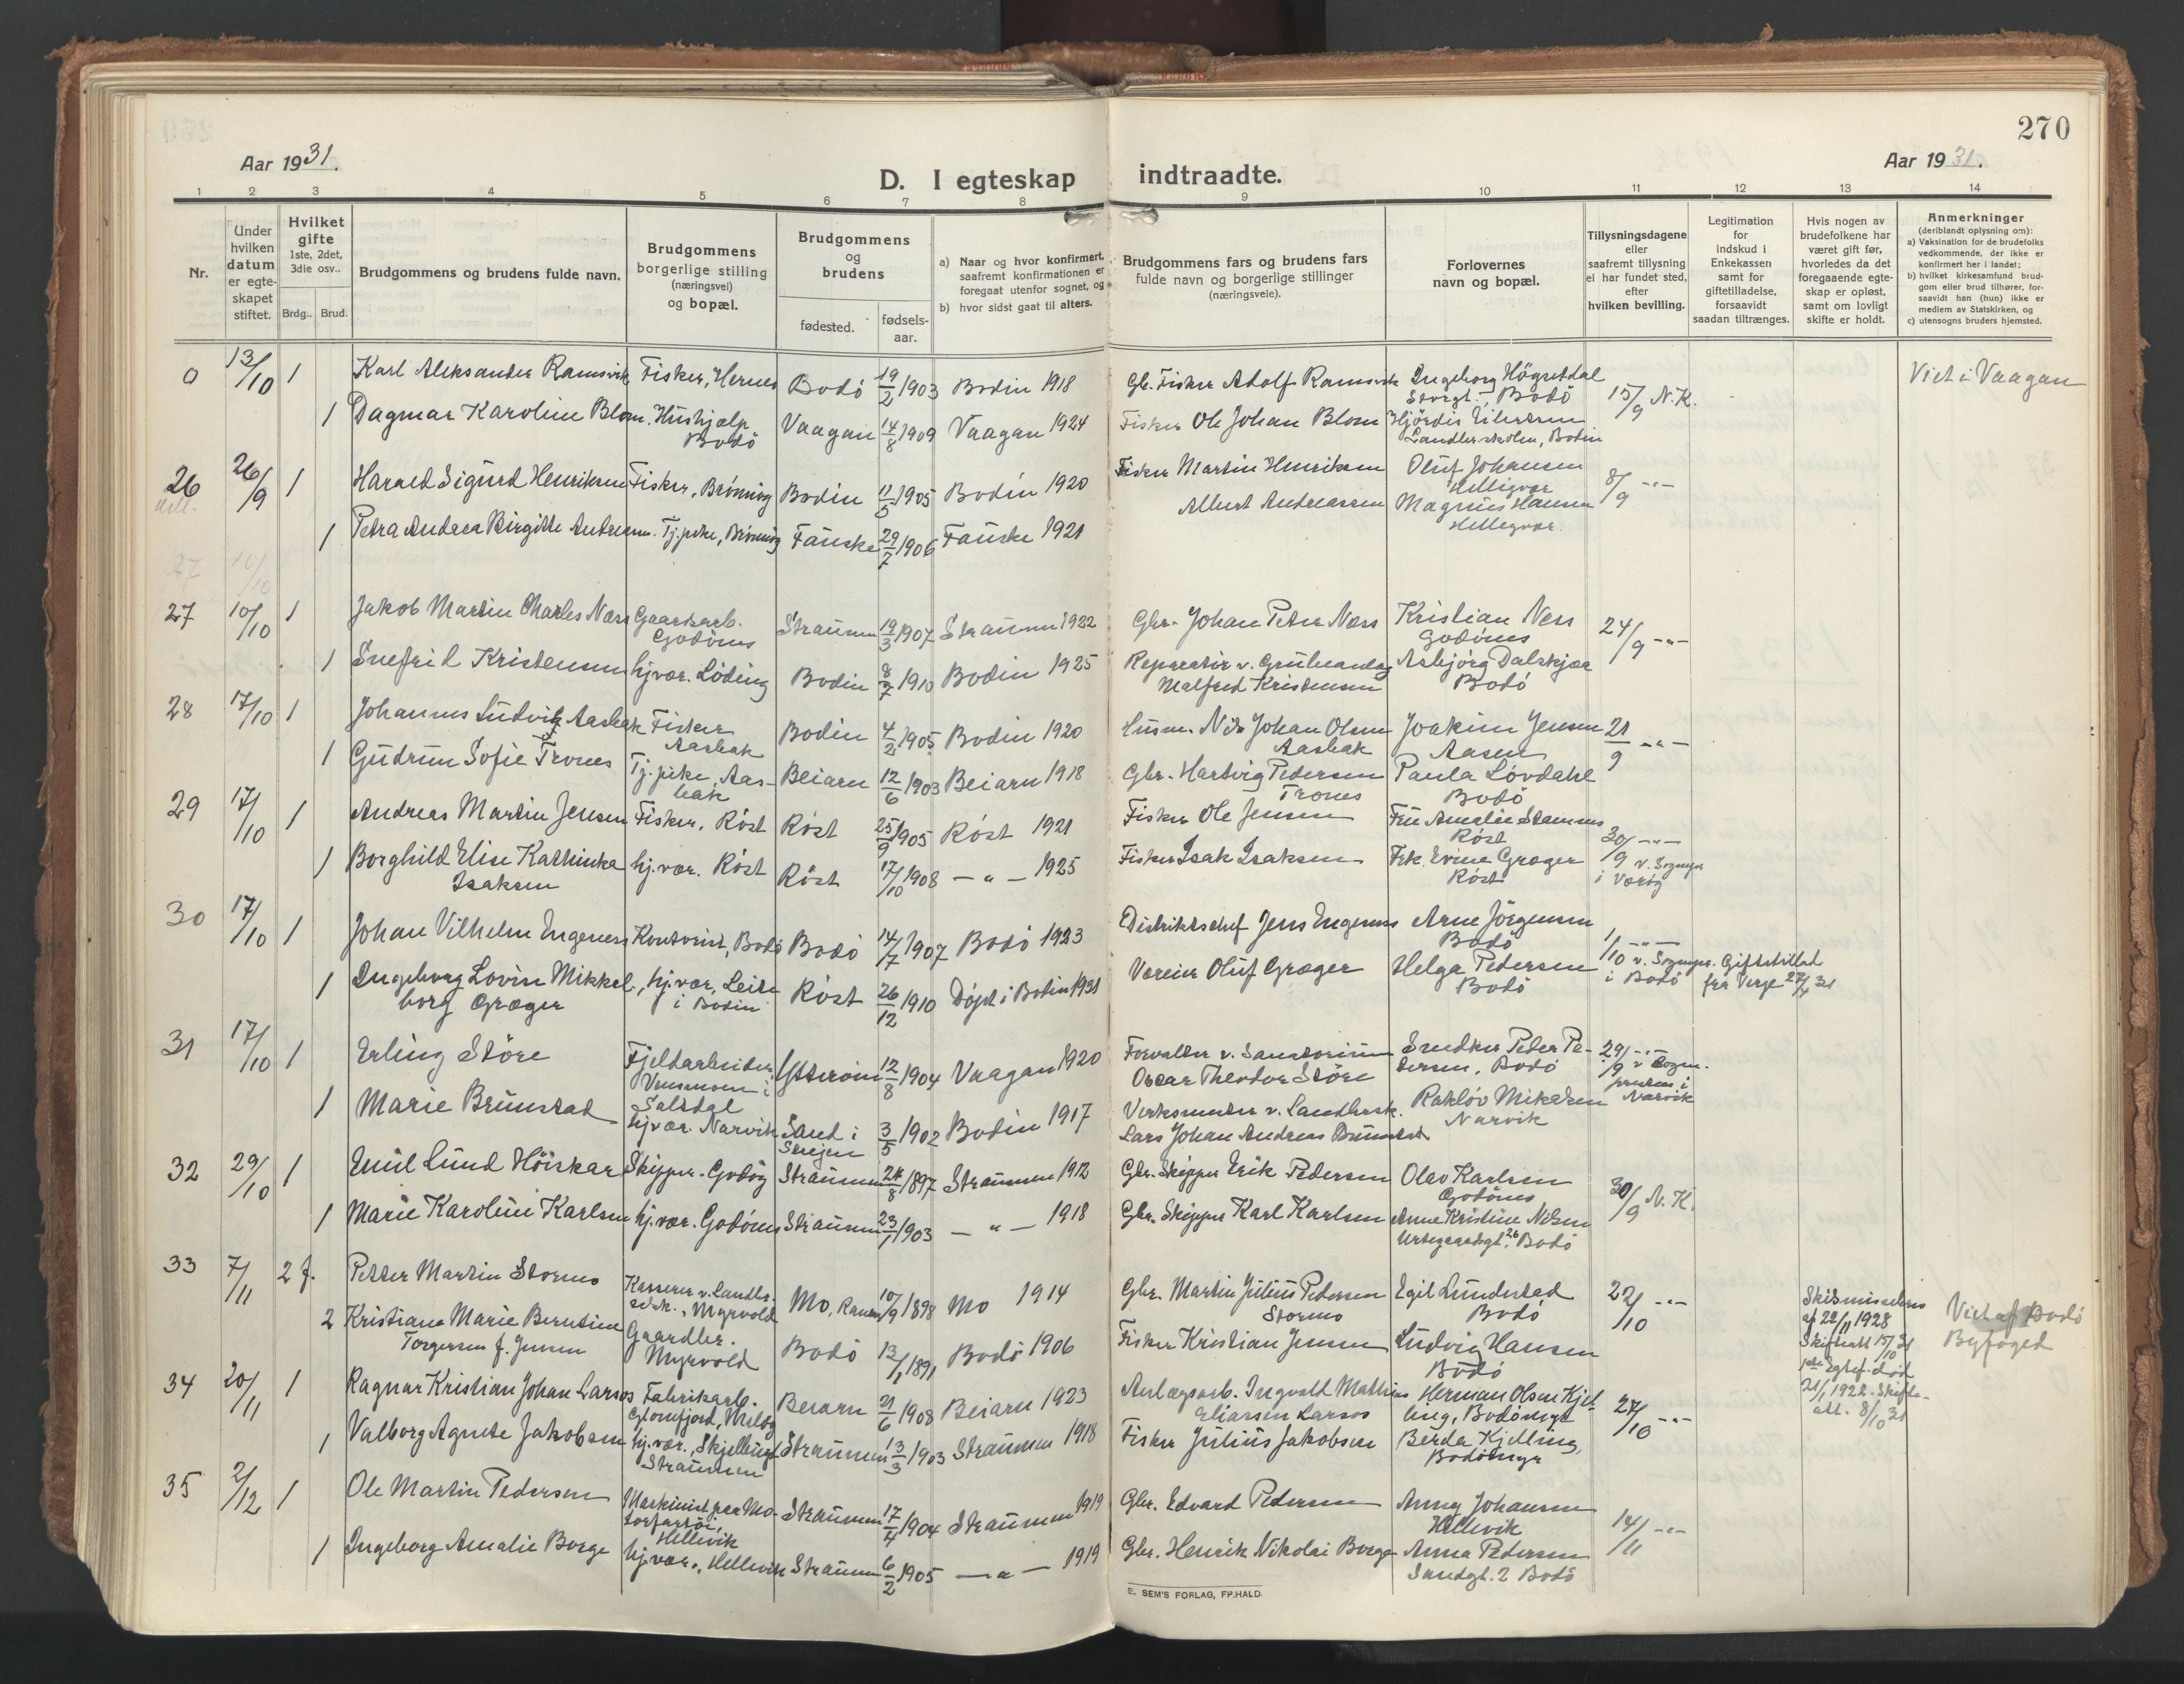 270
Aar 1931.
Aar 1931.
D. I egteskap indtraadte.
1 2 3 4 5 6 7 8 9 10 11 12 13 14
Nr.
Under hvilken datum er egte-skapet stiftet.
Hvilket gifte
1ste, 2det, 3die osv..
Brdg.. Brud.
Brudgommens og brudens fulde navn.
Brudgommens borgerlige stilling (næringsvei) og bopæl.
Brudgommens og brudens
fødested.
fødsels-aar.
a) Naar og hvor konfirmert, saafremt konfirmationen er foregaat utenfor sognet, og
b) hvor sidst gaat til alters.
Brudgommens fars og brudens fars fulde navn og borgerlige stillinger (næringsveie).
Forlovernes navn og bopæl.
Tillysningsdagene eller saafremt tillysning ei har fundet sted, efter hvilken bevilling.
Legitimation for indskud i Enkekassen samt for giftetilladelse, forsaavidt saadan tiltrænges.
Hvis nogen av brudefolkene har været gift før, hvorledes da det foregaaende egte-skap er opløst, samt om lovligt skifte er holdt.
Anmerkninger (deriblandt oplysning om):
a) Vaksination for de brudefolks vedkommende, der ikke er konfirmert her i landet;
b) hvilket kirkesamfund brud-gom eller brud tilhører, for-saavidt han (hun) ikke er medlem av Statskirken, og
c) utensogns bruders hjemsted.
0 13/10 1 Karl Aleksander Ramsvik Fisker, Hernes Bodö 19/2 1903 Bodin 1918 Gb. Fisker Adolf Ramsvik Ingeborg Högsetdal Storgt., Bodö 15/9 N.K. Viet i Vaagan
1 Dagmar Karoline Blom. Hushjælp Bodö Vaagan 14/8 1909 Vaagan 1924 Fisker Ole Johan Blom Hjördis Eilertsen Landbr.skolen, Bodin
26 26/9 1 Harald Sigurd Henriksen Fisker, Bodin 11/5 1905 Bodin 1920 Fisker Martin Henriksen Oluf Johansen Helligvær 8/9 -"-
1 Petra Andrea Birgitte Andreassen. Tj.pike, Fauske 29/7 1906 Fauske 1921 Albert Andreassen Magnus Hansen Helligvær.
27 10/10
27 10/10 1 Jakob Martin Charles Næss Gaardsarb. Godönes Straumen 19/3 1907 Straumen 1922 Gbr. Johan Peter Næss Kristian Ness Godönes 24/9 -"-
1 Snefrid Kristensen hj.vær. Löding Bodin 8/7 1910 Bodin 1925 Reparatör v. Grubeanlæg Malfred Kristensen Asbjörg Dalskjær Bodö
28 17/10 1 Johannes Ludvik Aasbak Fisker Aasbak Bodin 4/2 1905 Bodin 1920 Husm. Nils Johan Olsen Aasbak Joakim Jensen Aasen 21/9 -"-
1 Gudrun Sofie Trones Tj.pike, Aas-bak Beiarn 12/6 1903 Beiarn 1918 Gbr. Hartvig Pedersen Trones Paula Lövdahl Bodö
29 17/10 1 Andreas Martin Jensen Fisker, Röst Röst 25/9 1905 Röst 1921 Fisker Ole Jensen Fru Amalie Röst 30/9 -"- v. Sognepr. i Værøy
1 Borghild Elise Kathinka Isaksen hj.vær. Röst Röst 17/10 1908 -"- 1925 Fisker Isak Isaksen Frk. Evine Græger Röst
30 17/10 1 Johan Vilhelm Engenes Kontorist, Bodö Bodö 14/7 1907 Bodö 1923 Distriktschef Jens Engenes Arne Jörgensen Bodö 1/10 -"- v. Sognepr. i Bodö Giftetillad. fra Verge 27/ 31
1 Ingeborg Lovise Mikkel-borg Græger hj.vær, i Bodin Röst 26/12 1910 Döpt i Bodin 1931 Væreier Oluf Græger Helga Pedersen Bodö
31 17/10 1 Erling Störe Fjeldarbeider, i Saltdal 12/8 1904 Vaagan 1920 Forvalter v. Sanatorium Oscar Theodor Störe Snedker Peter Pe-dersen, Bodö 29/9 -"- v Sogne-presten i Narvik
1 Marie Brunstad hj.vær. Narvik Sand i 3/5 1902 Bodin 1917 Verksmester v. Landbrsk. Lars Johan Andreas Brunstad Mikalsen Narvik
32 29/10 1 Emil Lund Höiskar Skipper. Godöy Straumen 24/8 1897 Straumen 1912 Gbr. Skipper Erik Pedersen Olav Karlsen Godönes 30/9 N.K.
1 Marie Karoline Karlsen hj.vær. Godönes Straumen 23/1 1903 -"- 1918 Gbr. Skipper Karl Karlsen Anne Kristine Nilsen Urtegaardsgt. 26 Bodö
33 7/11 2 f. Petter Martin Stormo Kasserer v. Landbr. Myrvold Mo, Ranen 10/9 1898 Mo 1914 Gbr. Martin Julius Pedersen Stormo Egil Lundestad Bodö 22/10 -"- Skilsmisse af 22/11 1928 Skifteatt 15/10 31 Viet af Bodö Byfoged
2 Kristiane Marie Berntine Torgersen f. Jensen Gaardbr. Myrvold Bodö 13/1 1891 Bodö 1906 Fisker Kristian Jensen Ludvig Hansen Bodö 1ste Egtef. död 21/1 1922. Skifte-att. 8/10 31
34 20/11 1 Ragnar Kristian Johan Larsos Fabrikarb. Glomfjord, Meløy Beiarn 21/6 1908 Beiarn 1923 Anlægsarb. Ingvald Mathias Eliassen Larsos Herman Olsen Kjel-ling, Bodömyr 27/10 -"-
1 Valborg Agnete Jakobsen hj.vær., Straumen Straumen 13/3 1903 Straumen 1918 Fisker Julius Jakobsen Berda Kjelling, Bodömyr
35 2/12 1 Ole Martin Pedersen Maskinist paa Mo-torfartöi, Hellevik Straumen 17/4 1904 Straumen 1919 Gbr. Edvard Pedersen Anny Johansen Hellevik 14/11 -"-
1 Ingeborg Amalie Borge hj.vær., Hellevik Straumen 6/2 1905 -"- 1919 Gbr. Henrik Nikolai Borge Anna Pedersen Sandgt. 2 Bodö
E. SEM'S FORLAG, FP.HALD.